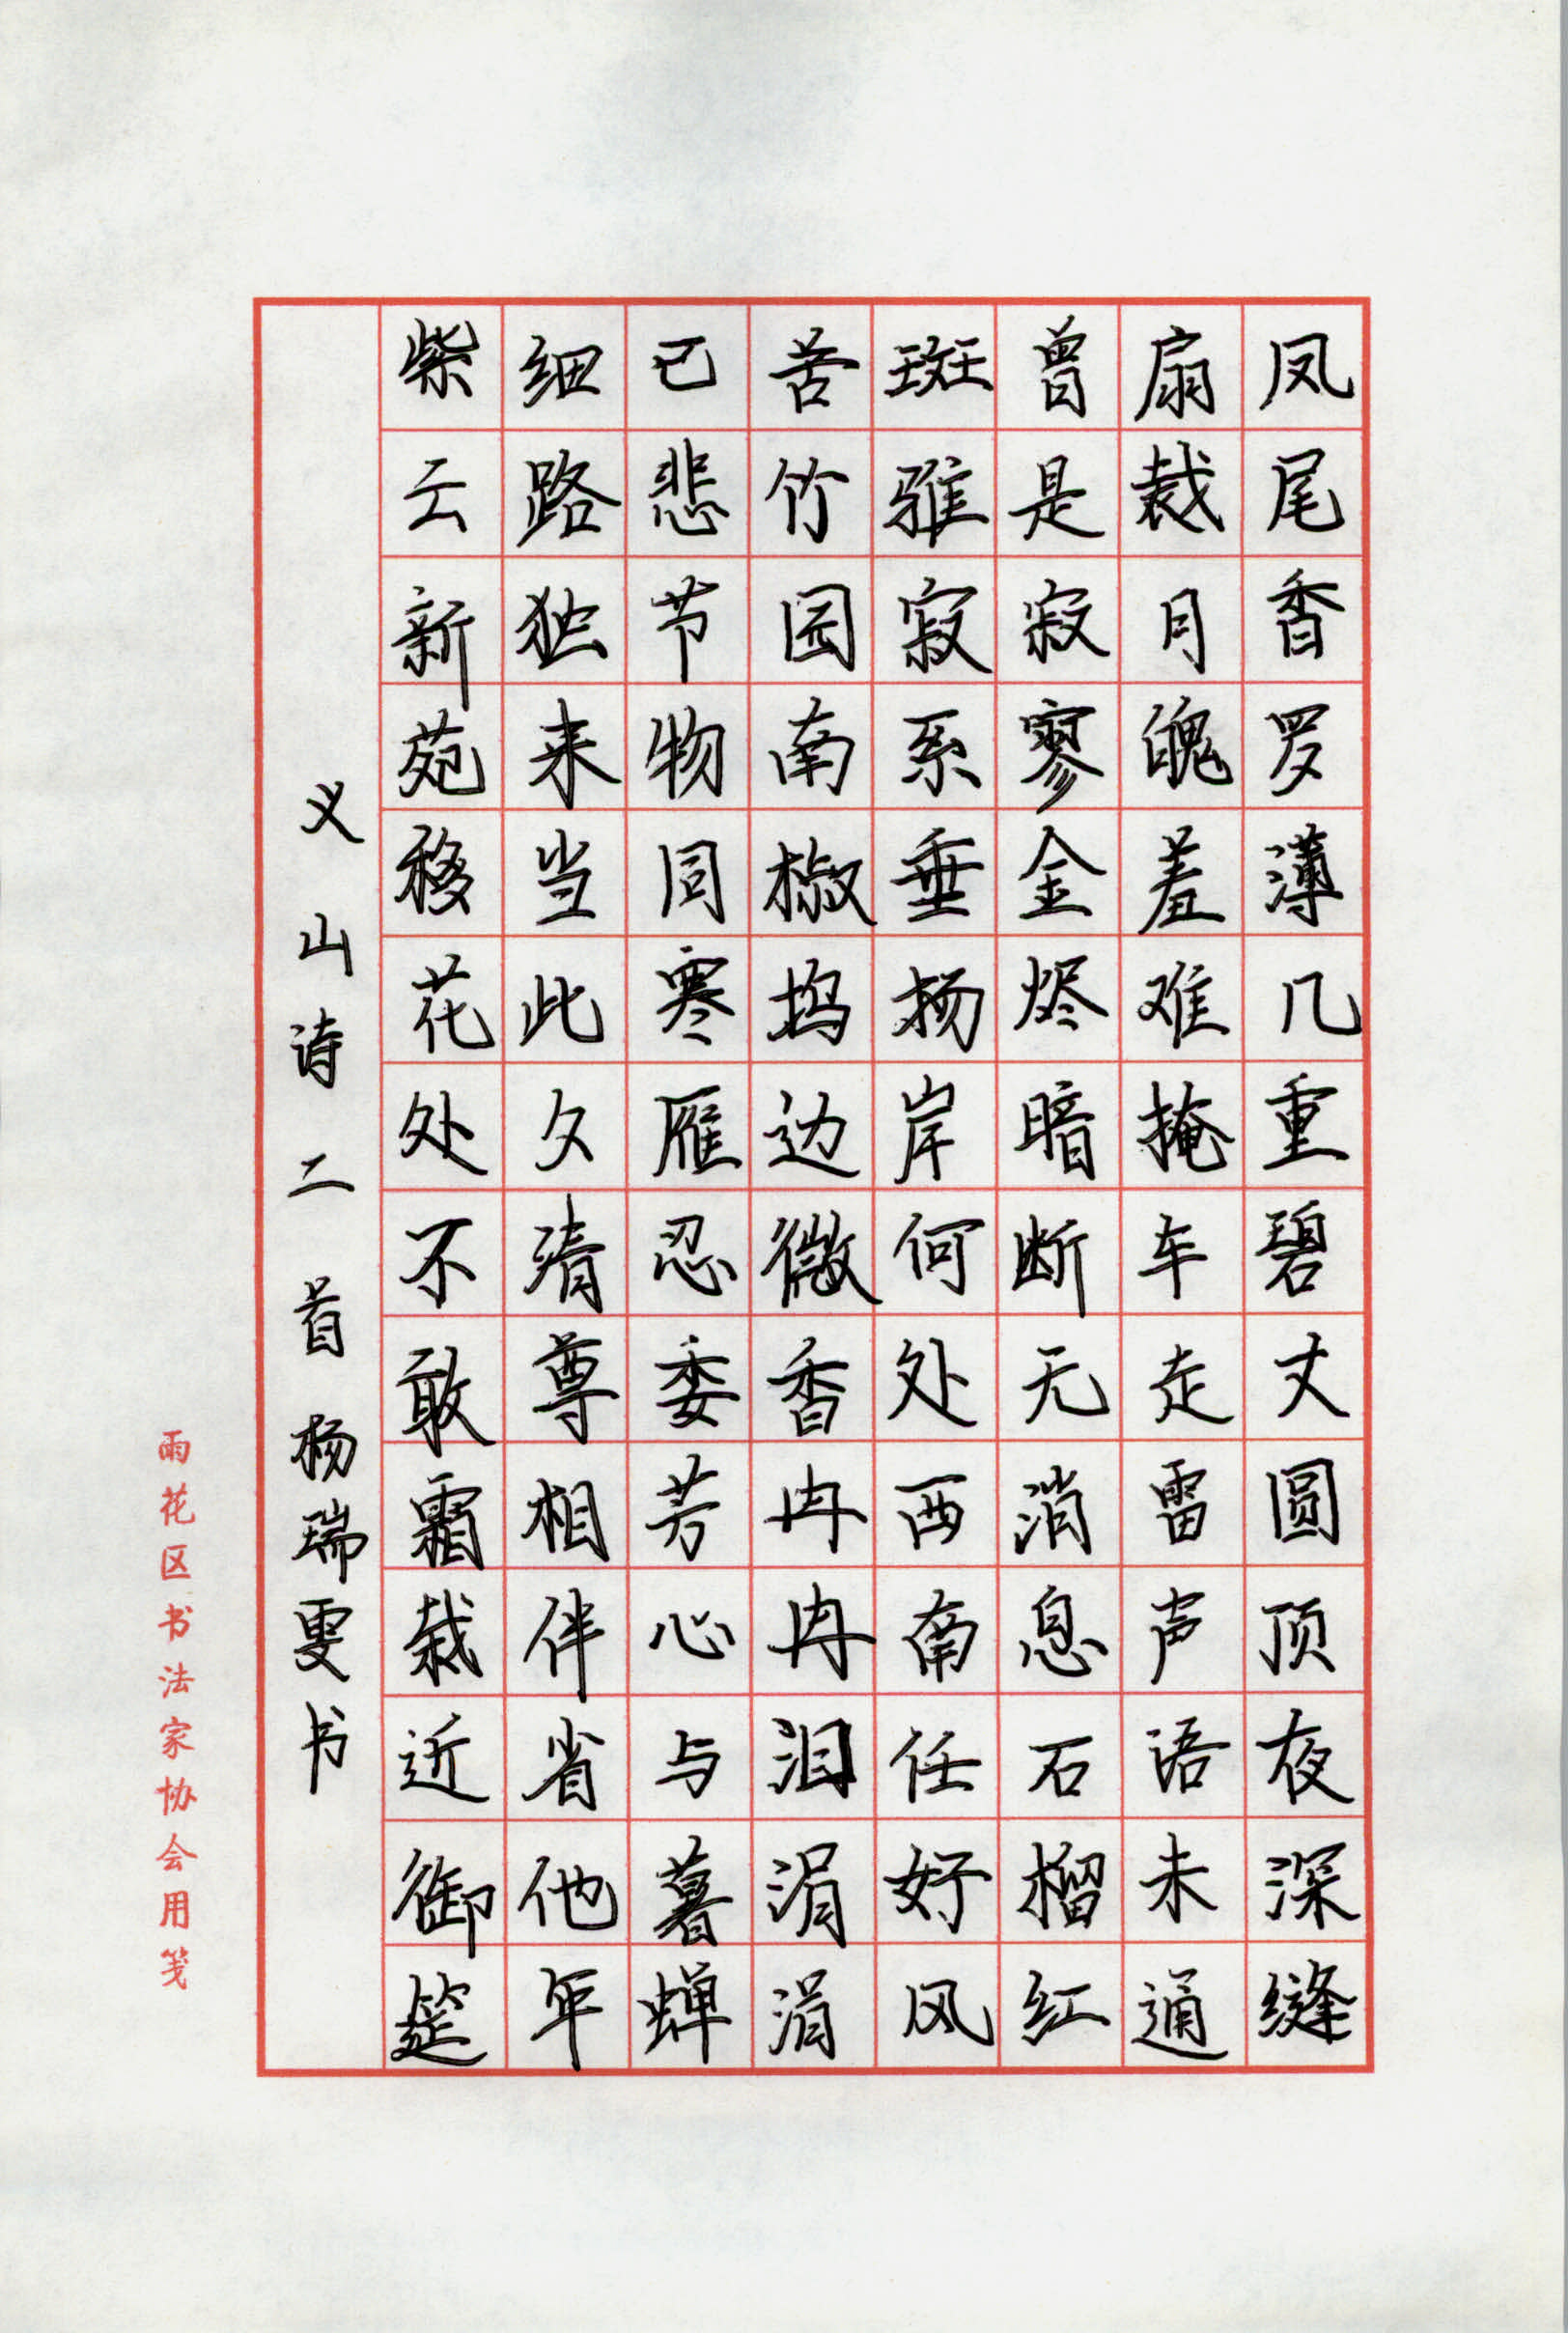 凤尾香罗薄几重碧丈圆顶夜深缝
扇裁月魄羞难掩车走雷声语未通
曾是寂寥金烬暗断无消息石榴红
斑骓寂系垂扬岸何处西南任好风
苦竹园南椒坞边微香冉冉泪涓涓
已悲节物同寒雁忍委芳心与暮蝉
细路独来当此夕清尊相伴省他年
紫云新苑移花处不敢霜栽近御筵
义山诗二首杨瑞雯书
雨花区书法家协会用笺